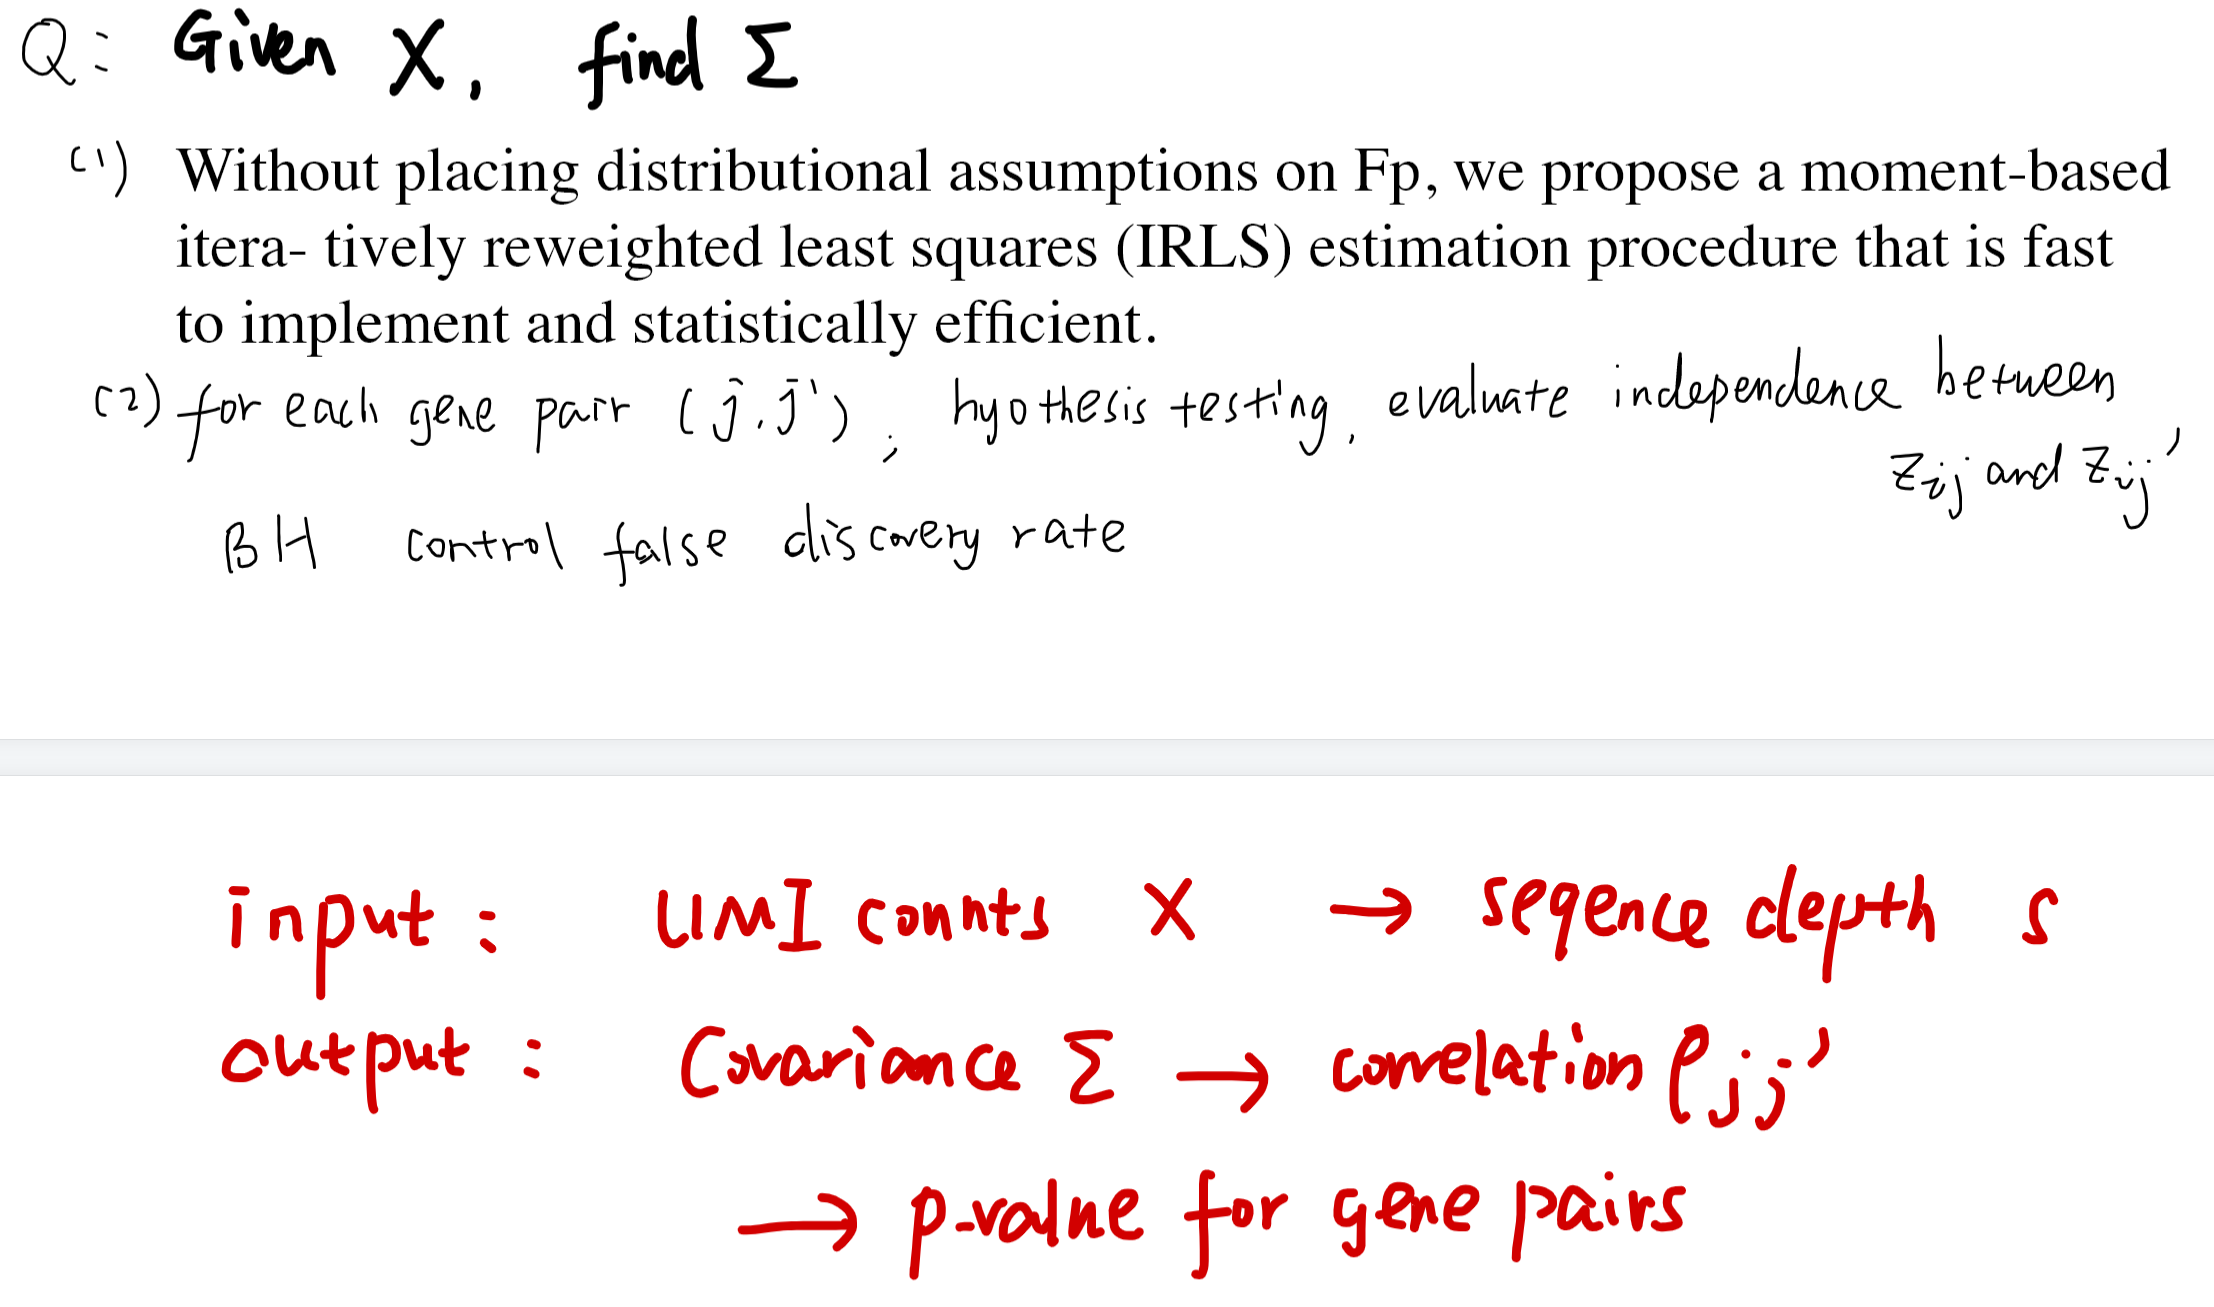 Q: Given X, find Σ
(1) Without placing distributional assumptions on Fp, we propose a moment-based
itera- tively reweighted least squares (IRLS) estimation procedure that is fast
to implement and statistically efficient.
(2) for each gene pair (j, j'), hyothesis testing, evaluate independence between
Zij and Zij'
BH control false discovery rate
input: UMI counts X → seqence depth s
output: Covariance Σ → correlation ρjj'
→ p-value for gene pairs